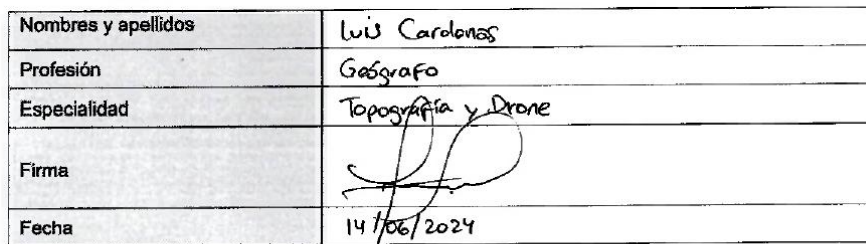 Nombres y apellidos Luis Cardenas
Profesión Geógrafo
Especialidad Topografía y Drone
Firma
Fecha 14/06/2024